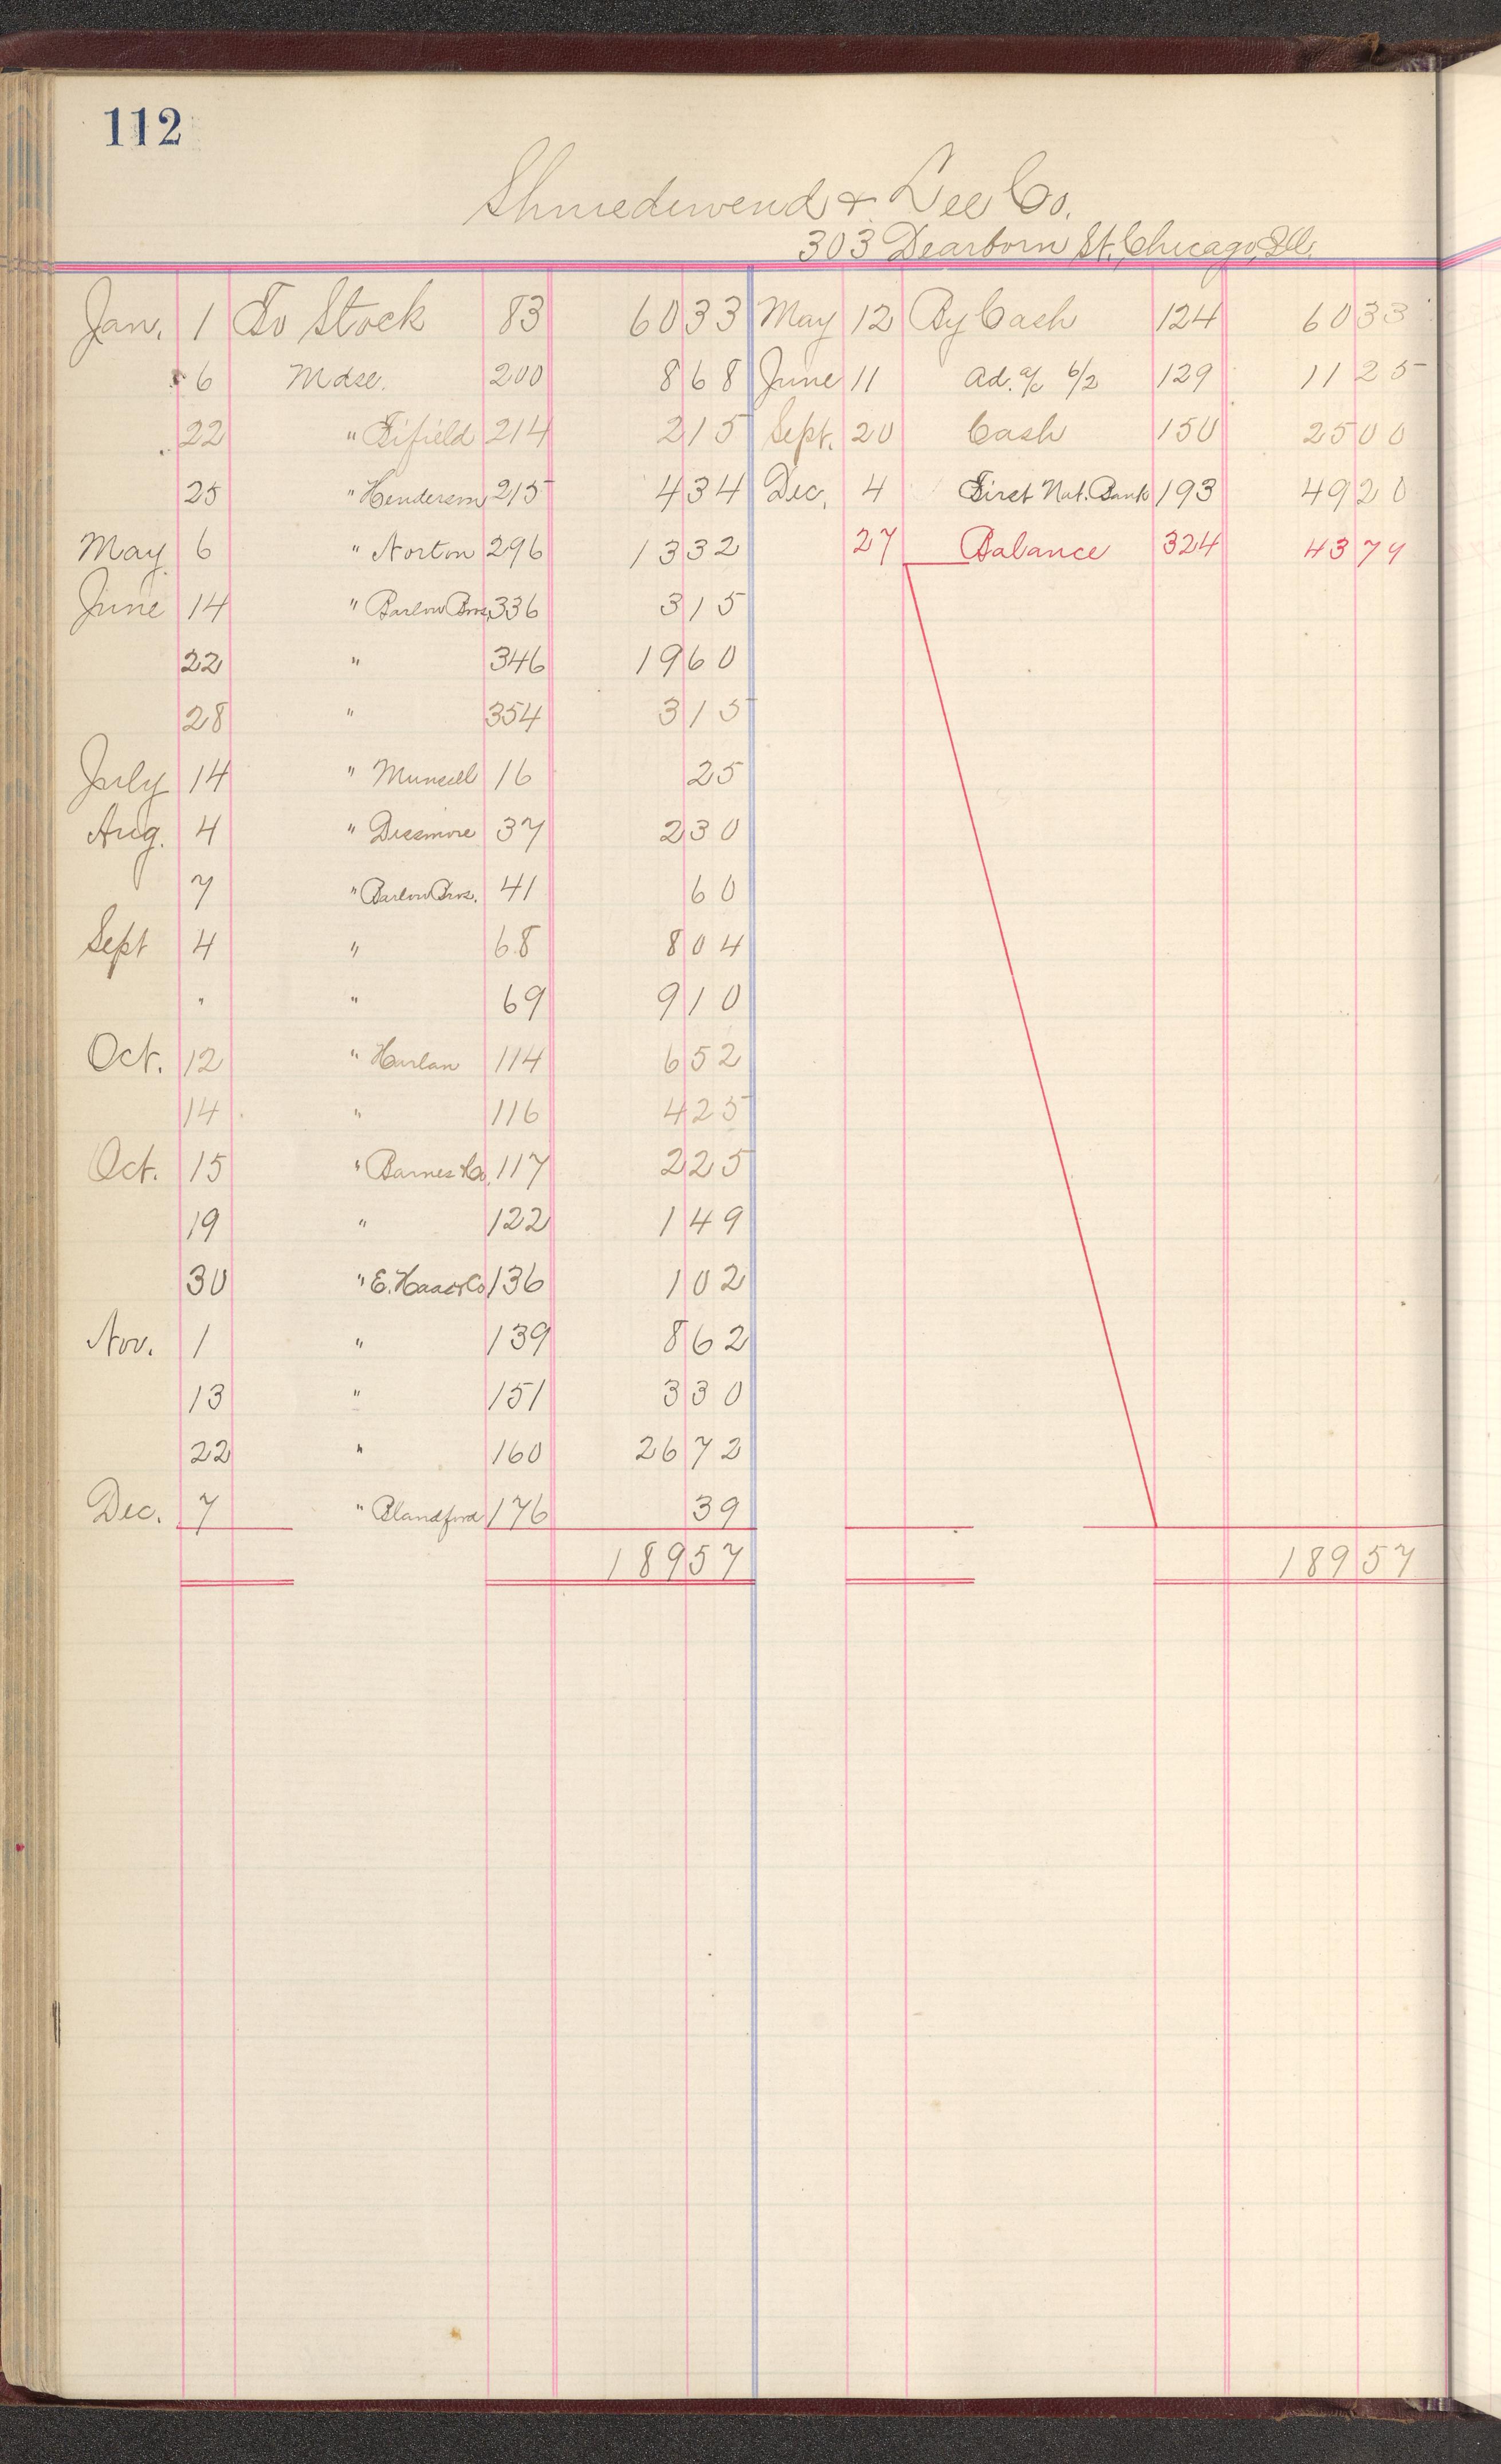 112
Shniedewend & Lee Co.
303 Dearborn St. Chicago, Ill.
Jan. 1 To Stock 83 60 33 May 12 By Cash 124 60 33
6 Mdse. 200 8 68 June 11 Ad. a/c 6/2 129 11 25
22 " Fifield 214 2 15 Sept. 20 Cash 150 25 00
25 " Henderson 215 4 34 Dec. 4 First Nat. Bank 193 49 20
May 6 " Norton 296 13 32 27 Balance 324 43 79
June 14 " Barlow Bros. 336 3 15
22 " 346 19 60
28 " 354 3 15
July 14 " Munsell 16 25
Aug. 4 " Dissmore 37 2 30
7 " Barlow Bros. 41 60
Sept 4 " 68 8 04
" " 69 9 10
Oct. 12 " Harlan 114 6 52
14 " 116 4 25
Oct. 15 " Barnes & Co. 117 2 25
19 " 122 1 49
30 " E. Haas & Co 136 1 02
Nov. 1 " 139 8 62
13 " 151 3 30
22 " 160 26 72
Dec. 7 " Blandford 176 39
189 57 189 57